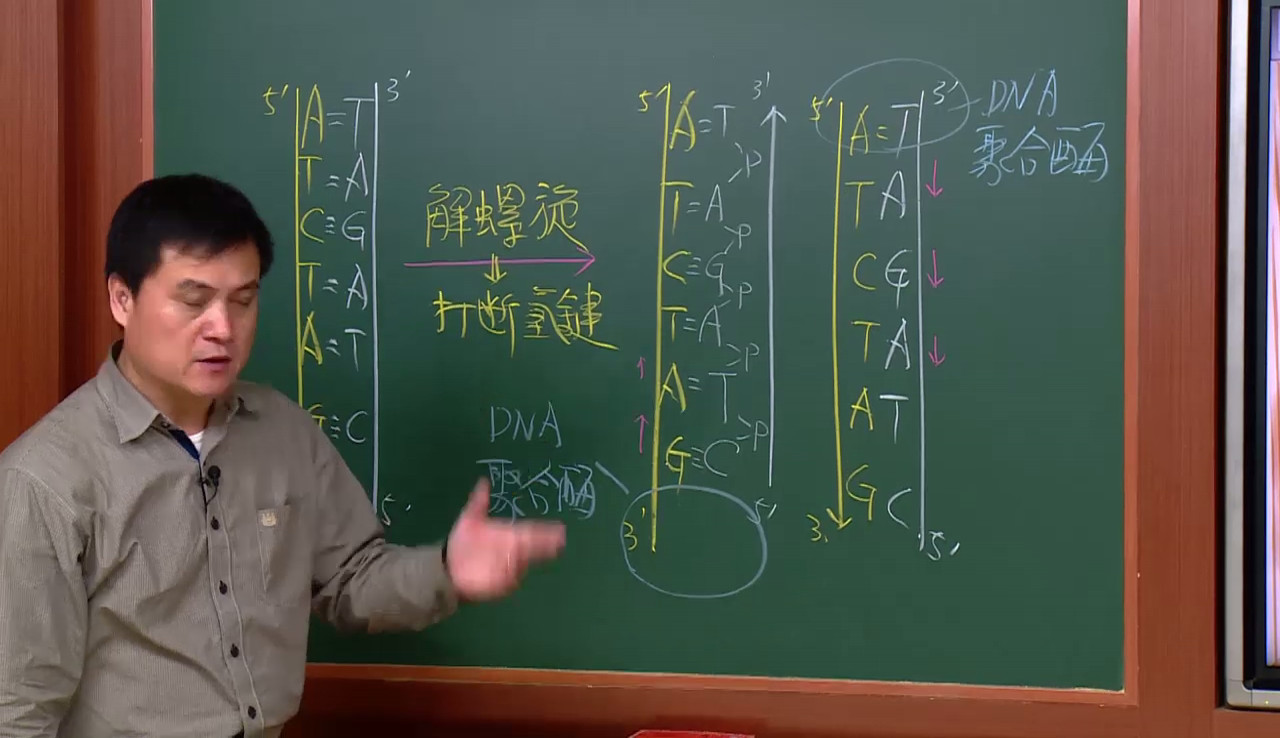 5' A=T 3'
T=A
C≡G
T=A
A=T
G≡C
5'
解螺旋
打断氢键
DNA
聚合酶
5' A=T 3'
>P
T=A
>P
C≡G
>P
T=A
>P
A=T
>P
G≡C
3' 5'
5' A=T 3'
T A
C G
T A
A T
G C
3' 5'
DNA
聚合酶